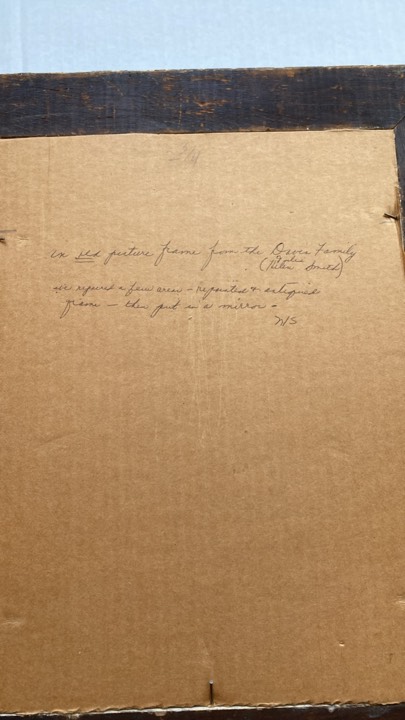 an old picture frame from the Davis Family
(Helen Smith)
we repaired a few areas - repainted & antiqued
frame - then put in a mirror.
N/S